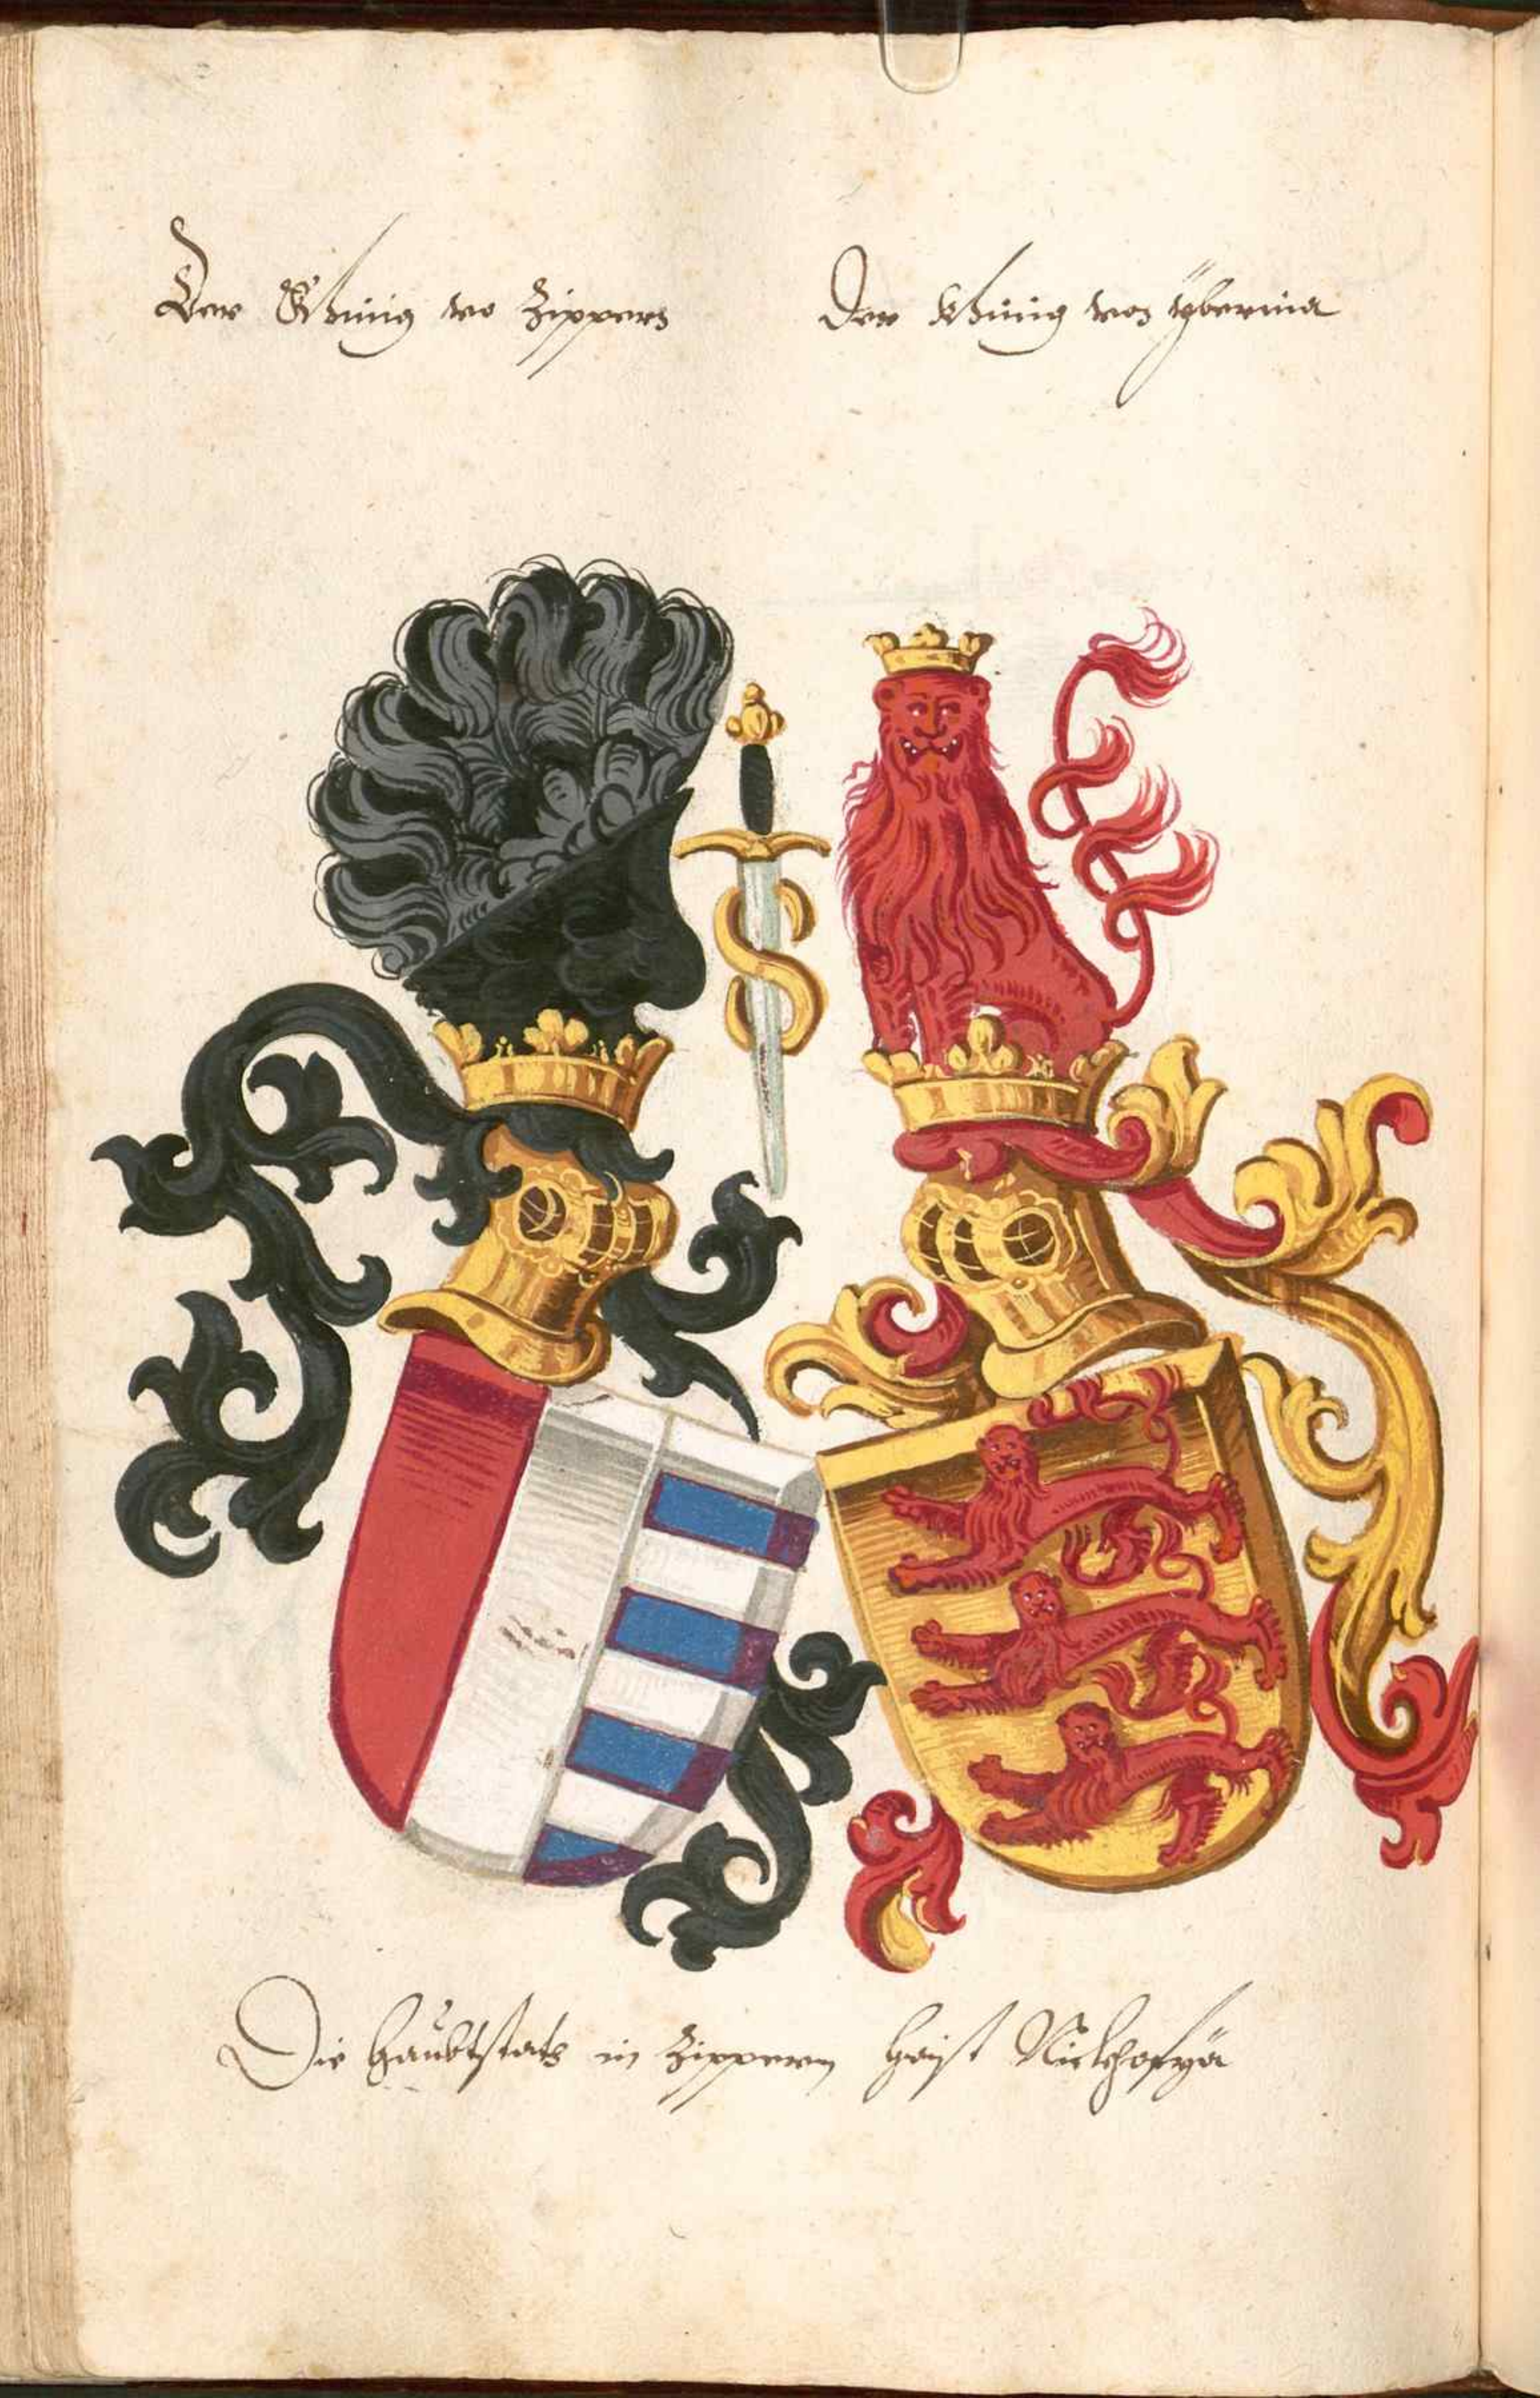 Der Khünig vo Zippern
Der Khünig von Ybernia
Die haubtstatt in Zippern haist Nickhosya